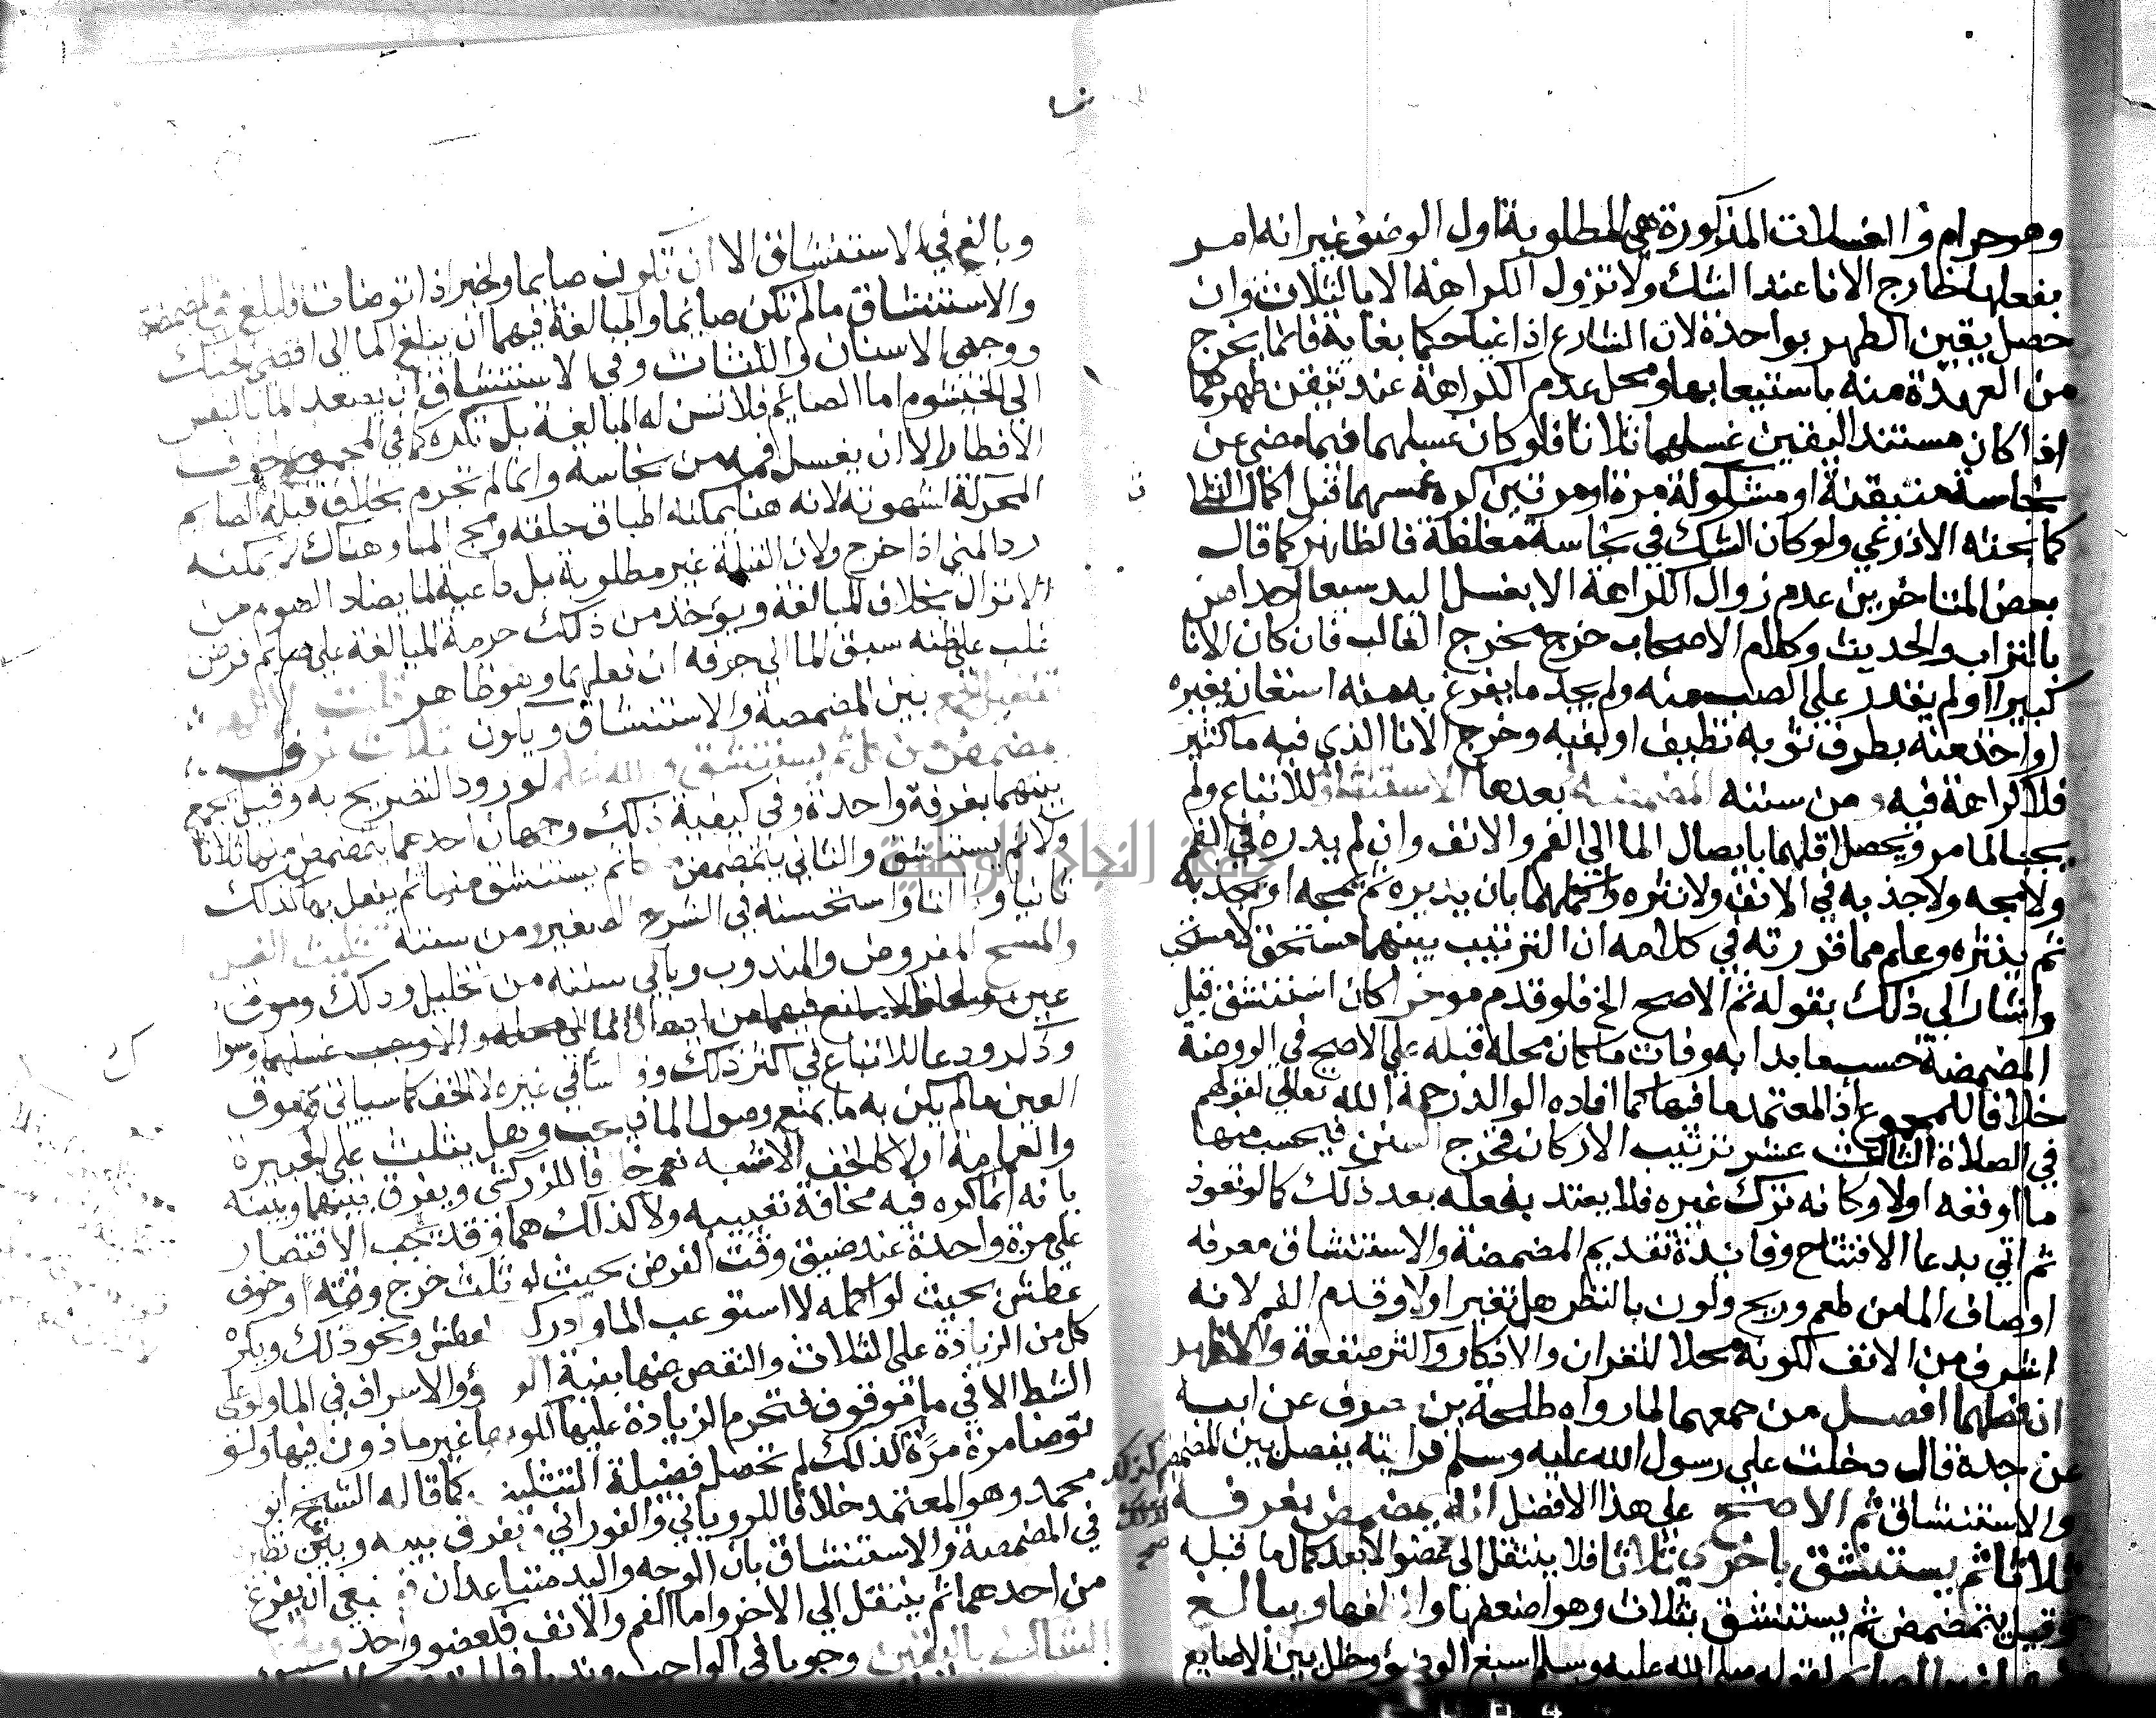 وهو حرام والغسلات المذكورة هي المطلوبة اول الوضوء غير انه امر
بفعلها خارج الانا عند الشك ولا تزول الكراهة الا بالثلاث وان
حصل يقين الطهر بواحدة لان الشارع اذا غيا حكما بغاية فانما يخرج
من العهدة منه باستيعابها ومحل عدم الكراهة عند تيقن طهرهما
اذا كان مستند اليقين غسلهما ثلاثا فلو كان غسلهما فيما مضى عن
نجاسة متيقنة او مشكوكة مرة او مرتين كره غمسهما قبل اكمال الثلا
كما بحثه الاذرعي ولو كان الشك في نجاسة مغلظة فالظاهر كما قال
بعض المتاخرين عدم زوال الكراهة الا بغسل اليد سبعا احدا من
بالتراب والحديث وكلام الاصحاب خرج مخرج الغالب فان كان الانا
كبيرا ولم يقدر على الصب منه ولم يجد ما يفرغ به منه استعان بغيره
او اخذ منه بطرف ثوبه نظيف او بفيه وخرج الانا الذي فيه ما كثير
فلا كراهة فيه ومن سننه المضمضة بعدها الاستنشاق للاتباع ولم
يجبا لما مر ويحصل اقلهما بايصال الما الى الفم والانف وان لم يدره في الفم
ولا مجه ولا جذبه في الانف ولا نثره واكملهما بان يديره ثم يمجه او يجذبه
ثم ينثره وعلم مما قررته في كلامه ان الترتيب بينهما مستحق لا مستحب
واشار الى ذلك بقوله ثم الاصح الخ فلو قدم موخرا كان استنشق قبل
المضمضة حسب ما بدا به وفات ما كان محله قبله على الاصح في الروضة
خلافا للمجموع اذ المعتمد ما فيها كما افاده الوالد رحمه الله تعالى لقولهم
في الصلاة الثالث عشر ترتيب الاركان فخرج السنن فيحسب منها
ما اوقعه اولا وكانه ترك غيره فلا يعتد بفعله بعد ذلك كما لو تعوذ
ثم اتى بدعا الافتتاح وفائدة تقديم المضمضة والاستنشاق معرفة
اوصاف الما من طعم وريح ولون بالنظر هل تغير اولا وقدم الفم لانه
اشرف من الانف لكونه محلا للقران والاذكار واكثر منفعة والاظهر
ان فصلهما افضل من جمعهما لما رواه طلحة بن صرف عن ابيه
عن جده قال دخلت على رسول الله عليه وسلم فرايته يفصل بين المضمضة
والاستنشاق ثم الاصح على هذا الافضل انه يمضمض بغرفة
ثلاثا ثم يستنشق باخرى ثلاثا فلا ينتقل الى عضو الا بعد كمال ما قبله
وقيل يتمضمض ثم يستنشق بثلاث وهو اضعفها وانظفها ويبالغ
فيهما غير الصائم لقوله صلى الله عليه وسلم اسبغ الوضوء وخلل بين الاصابع
وبالغ في الاستنشاق الا ان تكون صايما ولخبر اذا توضات فابلغ في المضمضة
والاستنشاق ما لم تكن صايما والمبالغة فيهما ان يبلغ الما الى اقصى الحنك
ووجهي الاسنان واللثات وفي الاستنشاق ان يصعد الما بالنفس
الى الخيشوم اما الصائم فلا تسن له المبالغة بل تكره كما في المجموع لخوف
الافطار الا ان يغسل فمه من نجاسة وانما لم تحرم بخلاف قبلة الصايم
المحركة لشهوته لانه هنا يمكنه اطباق حلقه ومج الما وهناك لا يمكنه
رد المني اذا خرج ولان القبلة غير مطلوبة بل داعية لما يضاد الصوم من
الانزال بخلاف المبالغة ويؤخذ من ذلك حرمة المبالغة على صايم فرض
غلب على ظنه سبق الما الى جوفه ان فعلهما وهو ظاهر قلت الاظهر
تفضيل الجمع بين المضمضة والاستنشاق ويكون بثلاث غرف
يمضمض من كل ثم يستنشق والله اعلم لورود التصريح به وقيل يجمع
بينهما بغرفة واحدة وفي كيفية ذلك وجهان احدهما يتمضمض منها ثلاثا
ولا ثم يستنشق والثاني يتمضمض منها ثم يستنشق منها ثم يفعل بها كذلك
ثانيا وثالثا واستحسنه في الشرح الصغير ومن سننه تثليث الغسل
والمسح المفروض والمندوب وباقي سننه من تخليل ودلك وموق
عين ولحاظ لا مانع فيهما من ايصال الما الى محله والا وجب غسلهما وسوا
وذكر ودعا للاتباع في اكثر ذلك وقياسا في غيره لا الخف كما سياتي فموق
العين ما لم يكن به ما يمنع وصول الما فيجب وهل يثلث على الجبيرة
والعمامة اولا كالخف الاشبه نعم خلافا للزركشي ويفرق بينهما وبينه
بانه انما كره فيه مخافة تعييبه ولا كذلك هما وقد يجب الاقتصار
على مرة واحدة عند ضيق وقت الفرض بحيث لو ثلث خرج وقته او خوف
عطش بحيث لو اكمله لاستوعب الما وادركه العطش ونحو ذلك ويكره
كل من الزيادة على الثلاث والنقص عنها بنية الوضوء والاسراف في الما ولو على
الشط الا في ما موقوف فتحرم الزيادة عليها لكونها غير ماذون فيها ولو
توضا مرة مرة كذلك لم تحصل فضيلة التثليث كما قاله الشيخ ابو
محمد وهو المعتمد خلافا للروياني والفوراني ويفرق بينه وبين نظيره
في المضمضة والاستنشاق بان الوجه واليد متباعدان فينبغي ان يفرغ
من احدهما ثم ينتقل الى الاخر واما الفم والانف فكعضو واحد
الشاك باليقين وجوبا في الواجب وندبا في المندوب